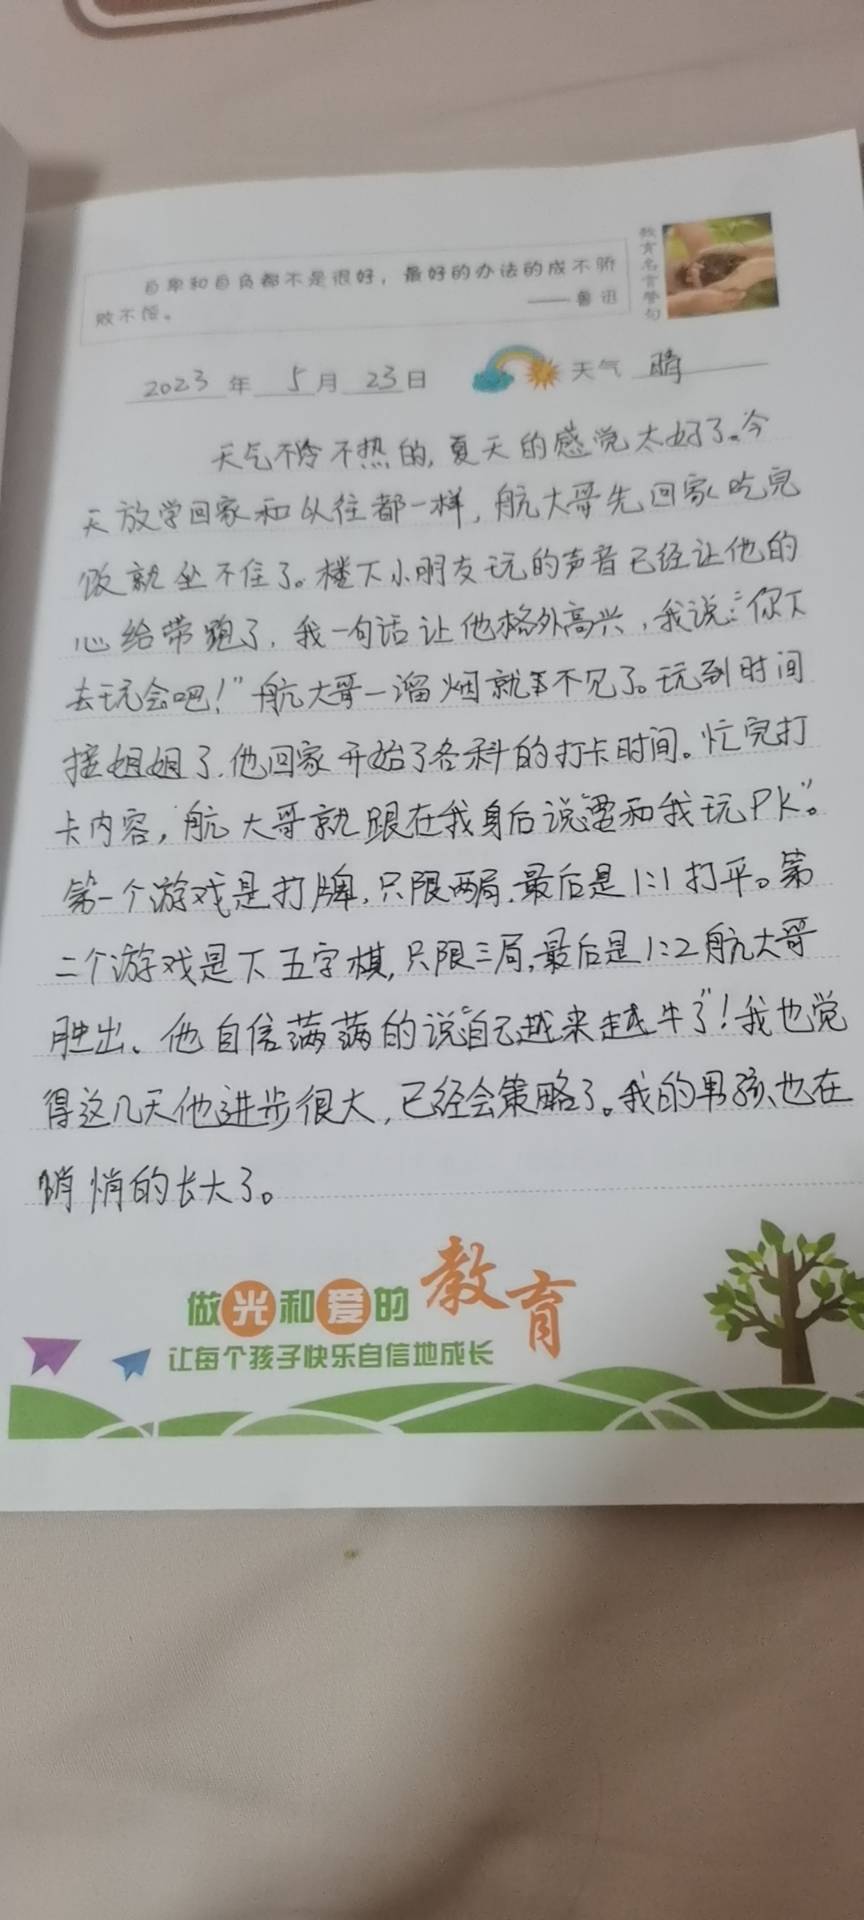 自卑和自负都不是很好，最好的办法的成不骄
败不馁。
——鲁迅
教育名言警句
2023年5月23日 天气 晴
天气不冷不热的，夏天的感觉太好了。今
天放学回家和以往都一样，航大哥先回家吃完
饭就坐不住了。楼下小朋友玩的声音已经让他的
心给带跑了，我一句话让他格外高兴，我说：“你下
去玩会吧！”航大哥一溜烟就不见了。玩到时间
接姐姐了，他回家开始了各科的打卡时间。忙完打
卡内容，航大哥就跟在我身后说“要和我玩PK”。
第一个游戏是打牌，只限两局，最后是1:1打平。第
二个游戏是下五字棋，只限三局，最后是1:2航大哥
胜出、他自信满满的说“自己越来越牛了”！我也觉
得这几天他进步很大，已经会策略了。我的男孩也在
悄悄的长大了。
做光和爱的教育
让每个孩子快乐自信地成长